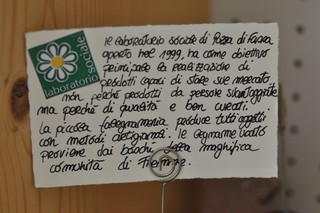 laboratorio sociale
Il laboratorio sociale di Pozza di Fassa
aperto nel 1999, ha come obiettivo
principale la realizzazione di
prodotti capaci di stare sul mercato
non perché prodotti da persone svantaggiate
ma perché di qualità e ben curati.
La piccola falegnameria produce tutti oggetti
con metodi artigianali. Il legname usato
proviene dai boschi della magnifica
comunità di Fiemme.